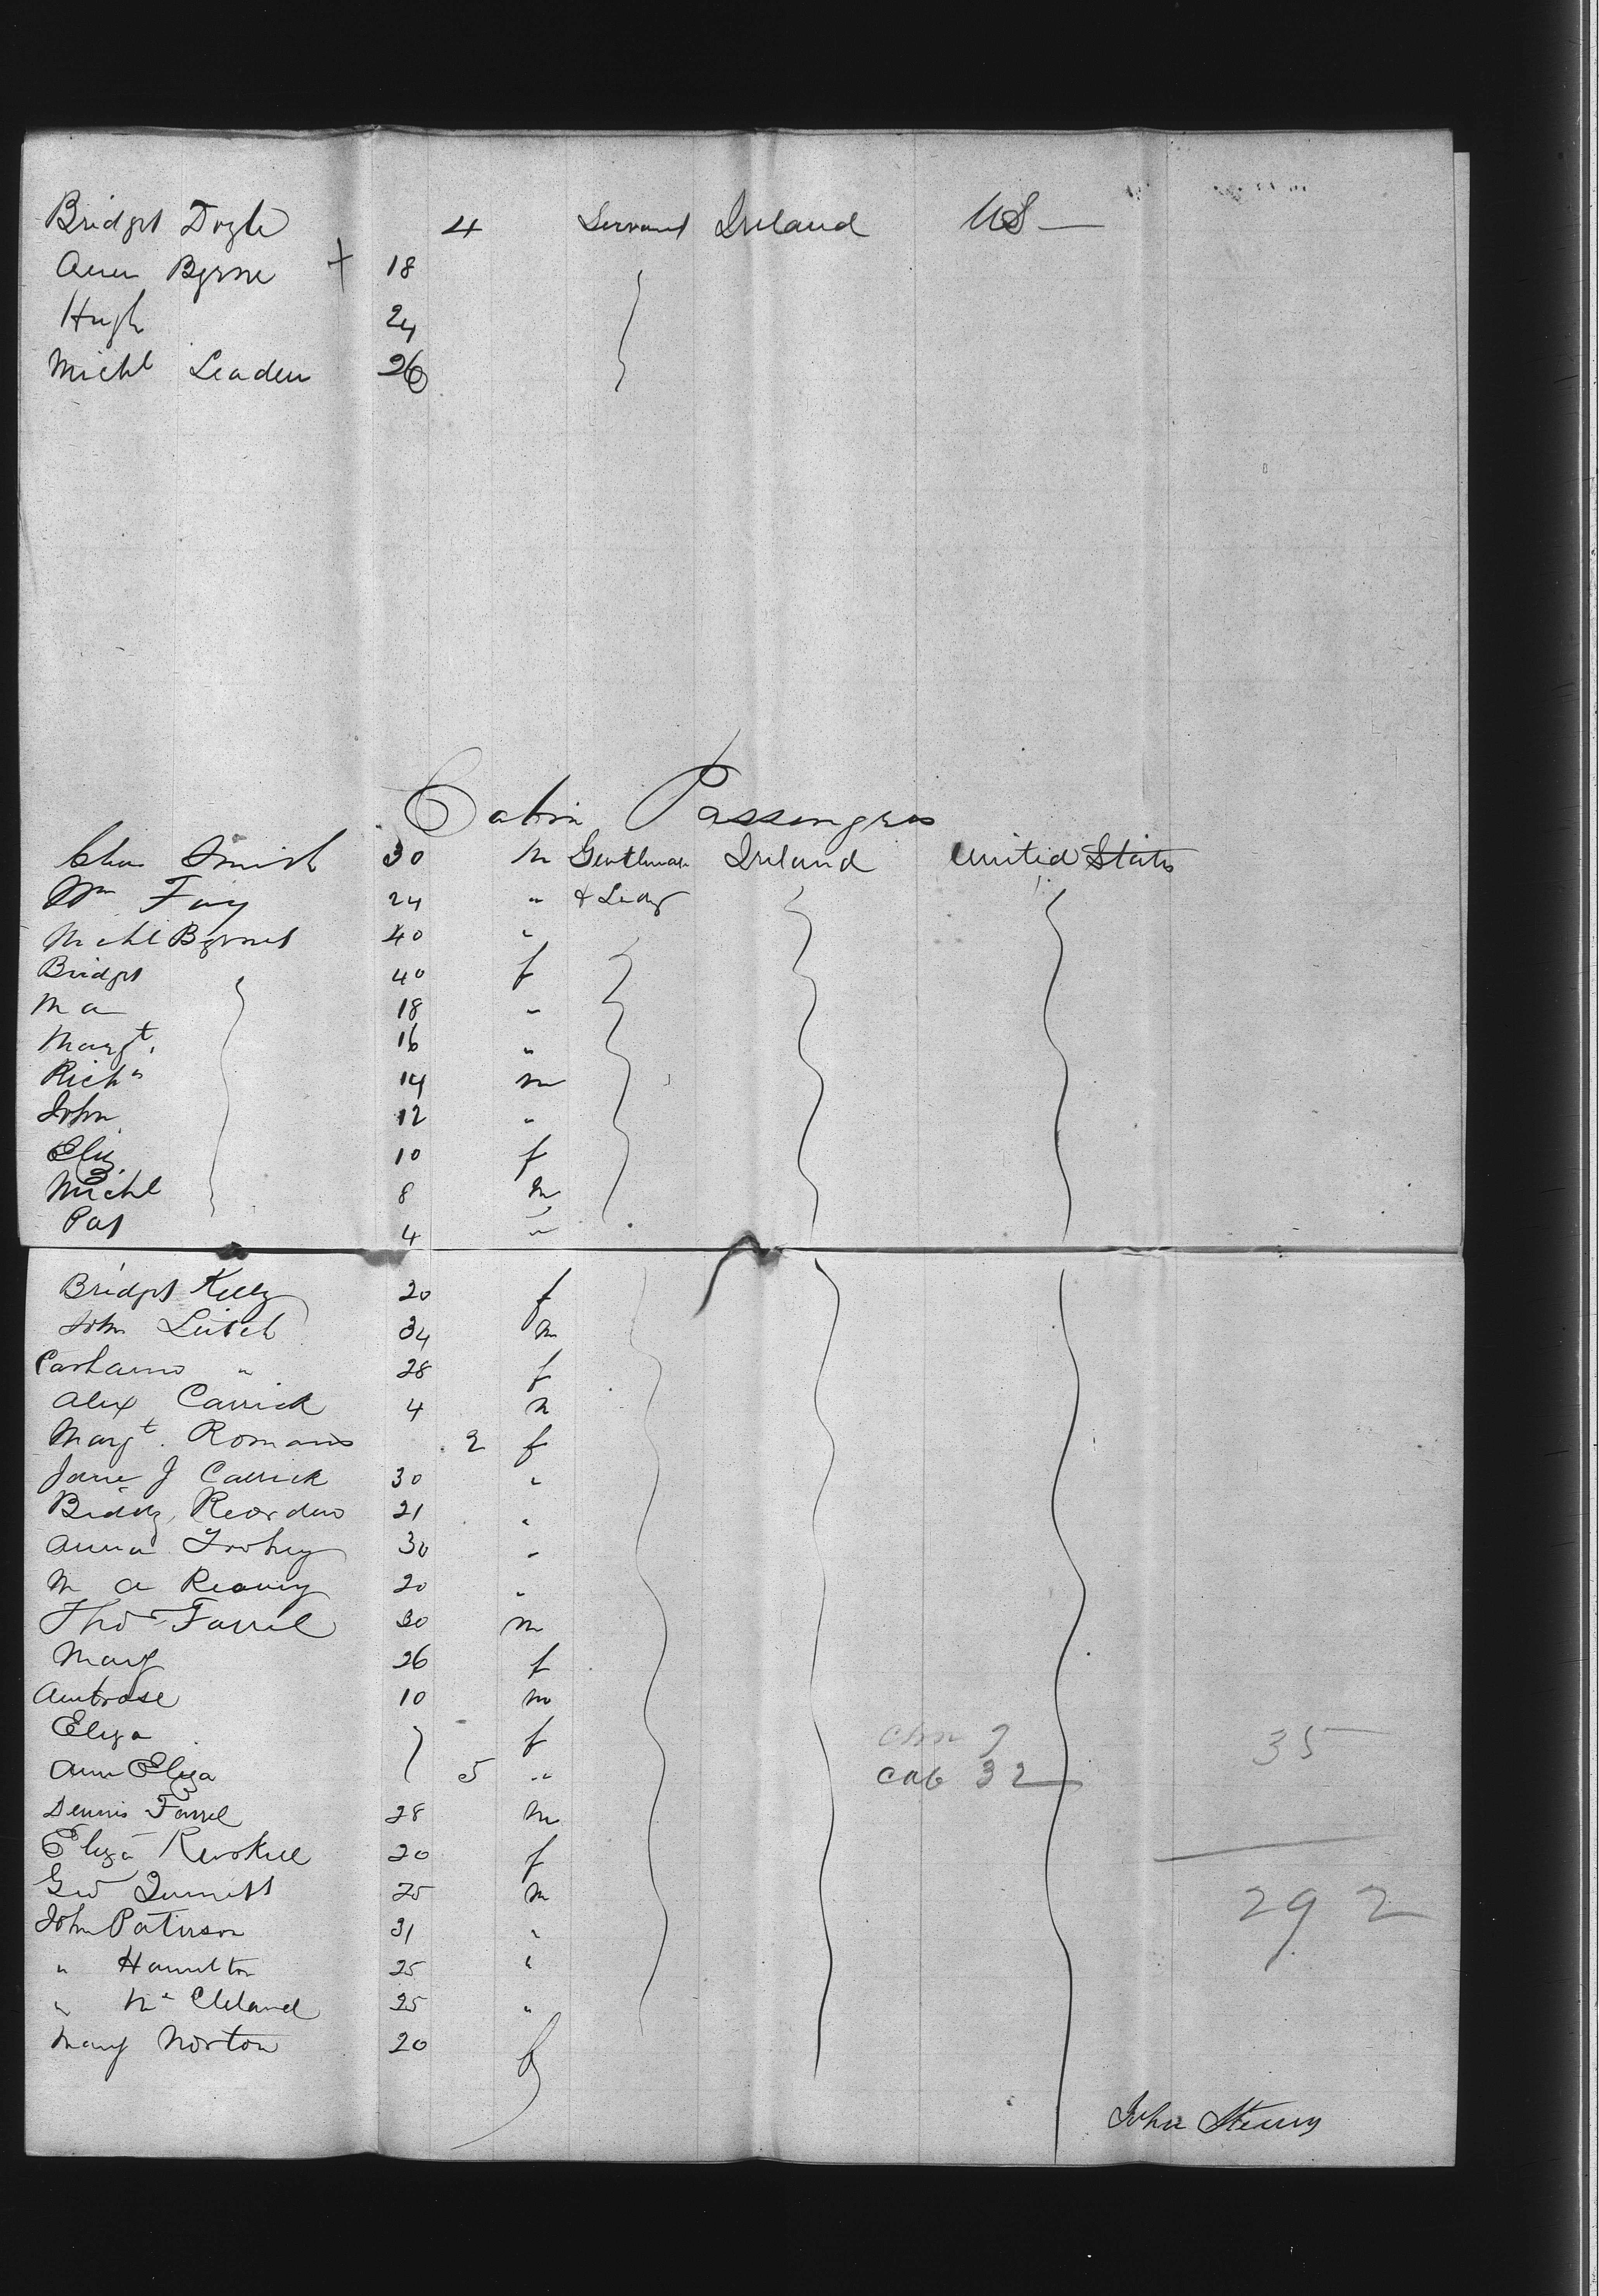 Bridgt Doyle 4 Servant Ireland US —
Ann Byrne + 18
Hugh 24
Michl Leaden 26
Cabin Passengers
Chas Smith 30 m Gentleman Ireland United States
Wm Foy 24 " & Lady
Michl Byrnes 40 "
Bridgt 40 f
M a 18 "
Margt. 16 "
Richd 14 m
John 12 "
Eliz 10 f
Michl 8 m
Pat 4 "
Bridgt Kelly 20 f
John Leitch 34 m
" 28 f
Alex Carrick 4 m
Margt. Romans 2 f
Jane J Carrick 30 "
Biddy Reordon 21 "
Anna 30 "
M a 20 "
Tho Farrel 30 m
Mary 26 f
Ambrose 10 m
Eliza f
Ann Eliza 5 "
35
cab 32
Dennis Farrel 28 m
Eliza 20 f
Geo 25 m
292
John Paterson 31 "
" Hamilton 25 "
" Mc Cleland 25 "
Mary Norton 20 f
John